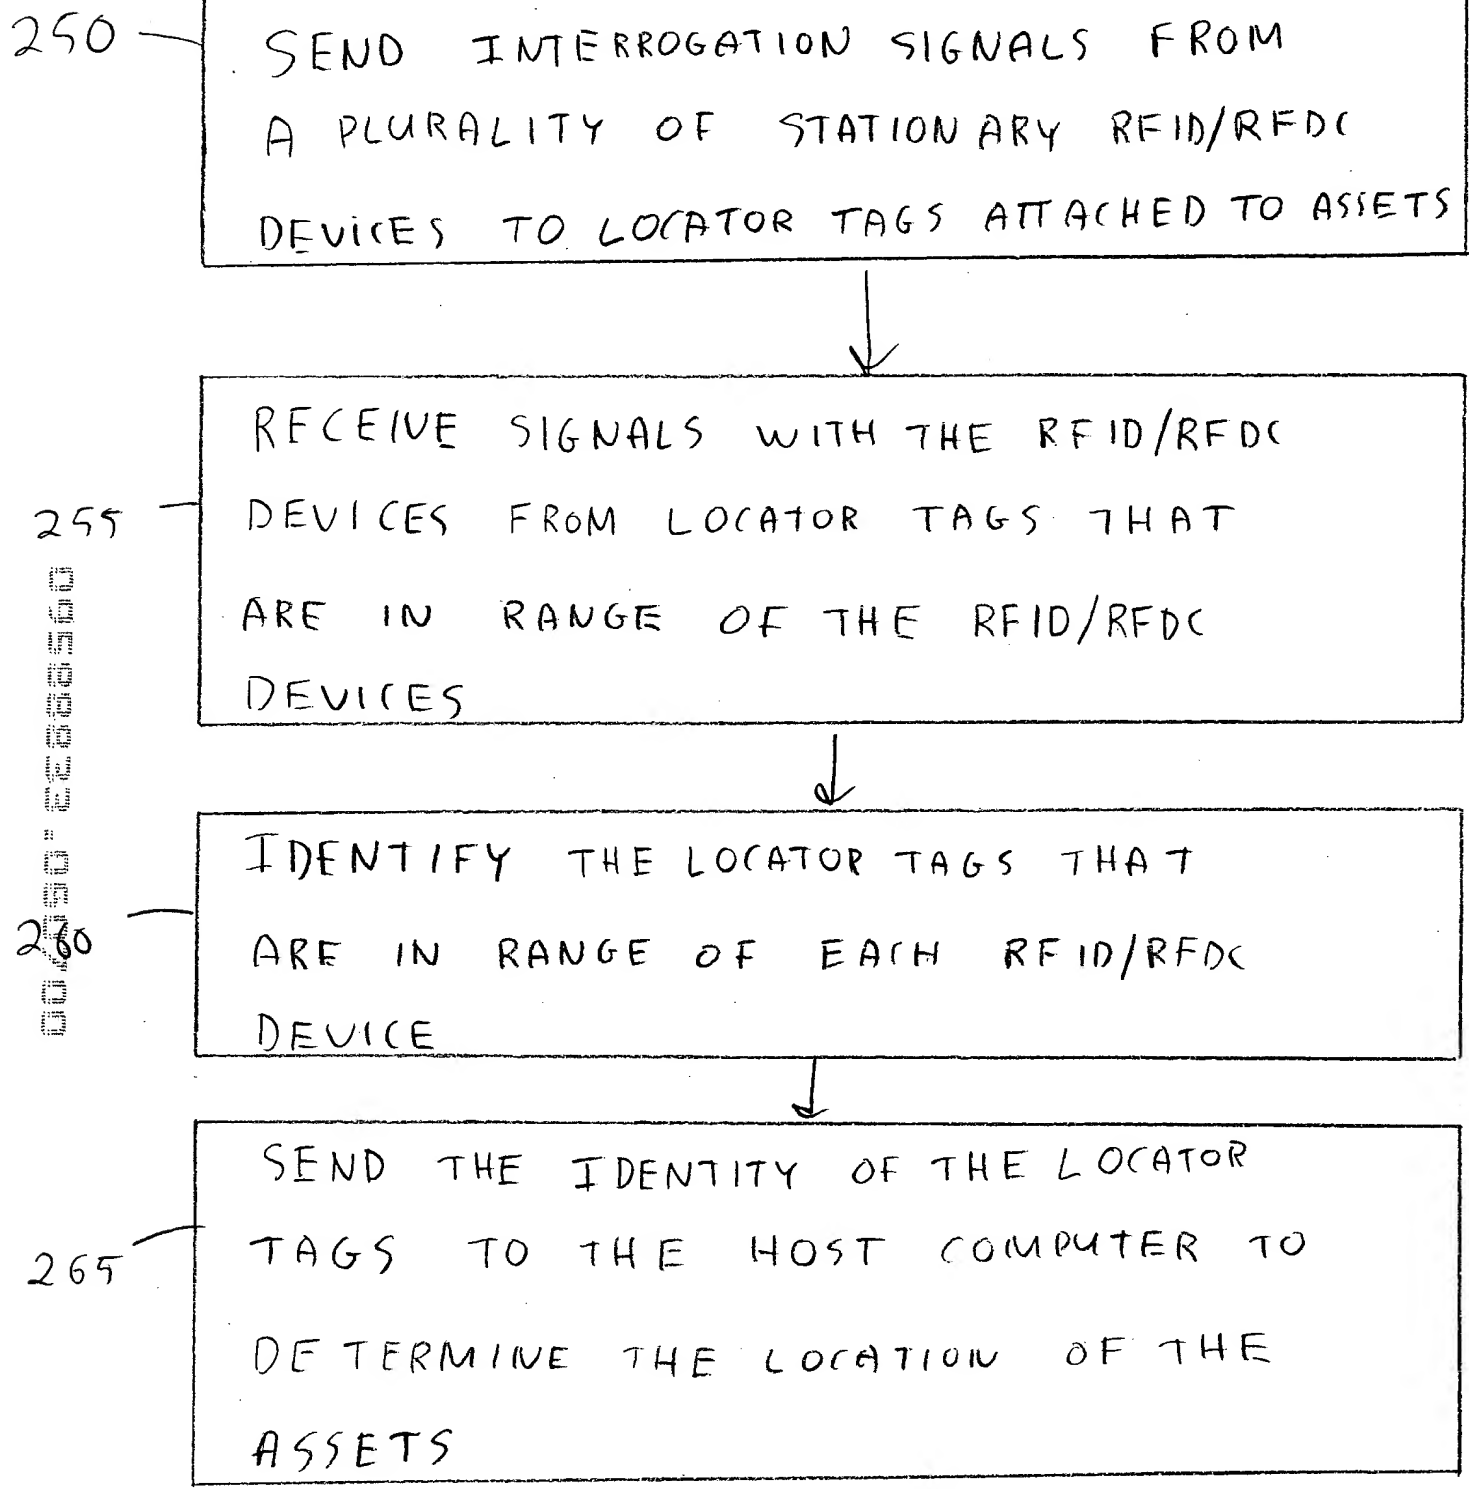 250
SEND INTERROGATION SIGNALS FROM
A PLURALITY OF STATIONARY RFID/RFDC
DEVICES TO LOCATOR TAGS ATTACHED TO ASSETS
RECEIVE SIGNALS WITH THE RFID/RFDC
255
DEVICES FROM LOCATOR TAGS THAT
ARE IN RANGE OF THE RFID/RFDC
DEVICES
IDENTIFY THE LOCATOR TAGS THAT
260
ARE IN RANGE OF EACH RFID/RFDC
DEVICE
SEND THE IDENTITY OF THE LOCATOR
265
TAGS TO THE HOST COMPUTER TO
DETERMINE THE LOCATION OF THE
ASSETS